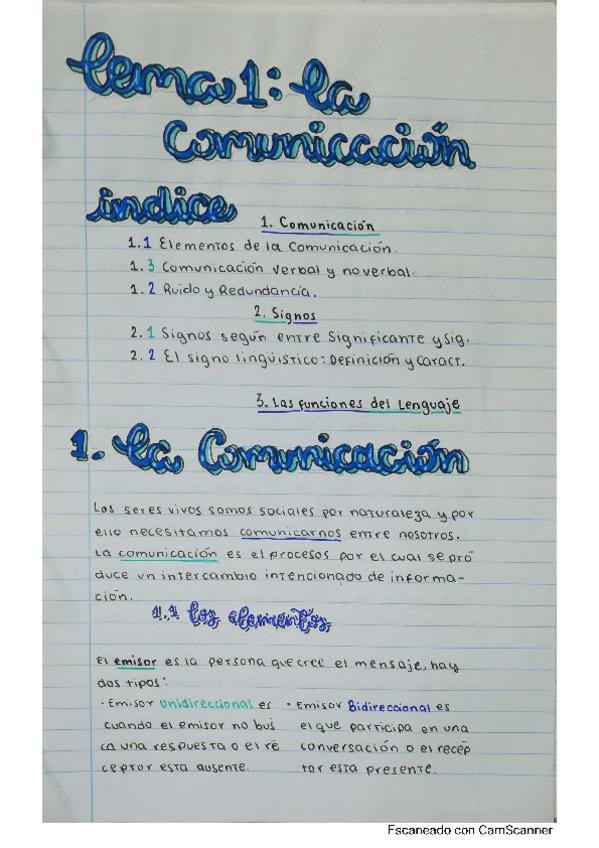 tema 1: la
Comunicación
índice
1. Comunicación
1.1 Elementos de la Comunicación.
1.3 Comunicación verbal y no verbal.
1.2 Ruido y Redundancia.
2. Signos
2.1 Signos según entre Significante y Sig.
2.2 El signo lingüístico: Definición y Caract.
3. Las funciones del Lenguaje
1. La Comunicación
Los seres vivos somos sociales por naturaleza y por
ello necesitamos comunicarnos entre nosotros.
La comunicación es el procesos por el cual se pro
duce un intercambio intencionado de informa-
ción.
1.1 los elementos
El emisor es la persona que cree el mensaje, hay
dos tipos:
· Emisor Unidireccional es
cuando el emisor no bus
ca una respuesta o el re
ceptor esta ausente.
· Emisor Bidireccional es
el que participa en una
conversación o el recep
tor esta presente.
Escaneado con CamScanner